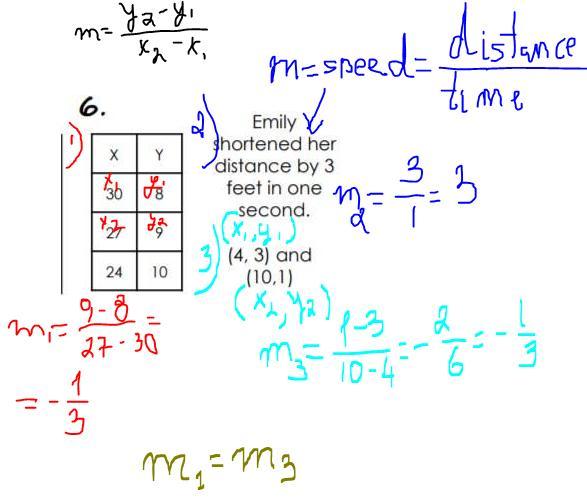 m = y2 - y1 / x2 - x1
m = speed = distance / time
6.
1)
X Y
30 8
x1 y1
27 9
x2 y2
24 10
2)
Emily
shortened her
distance by 3
feet in one
second.
m2 = 3/1 = 3
3)
(x1, y1)
(4, 3) and
(10,1)
(x2, y2)
m1 = 9 - 8 / 27 - 30 =
= - 1/3
m3 = 1 - 3 / 10 - 4 = - 2/6 = - 1/3
m1 = m3